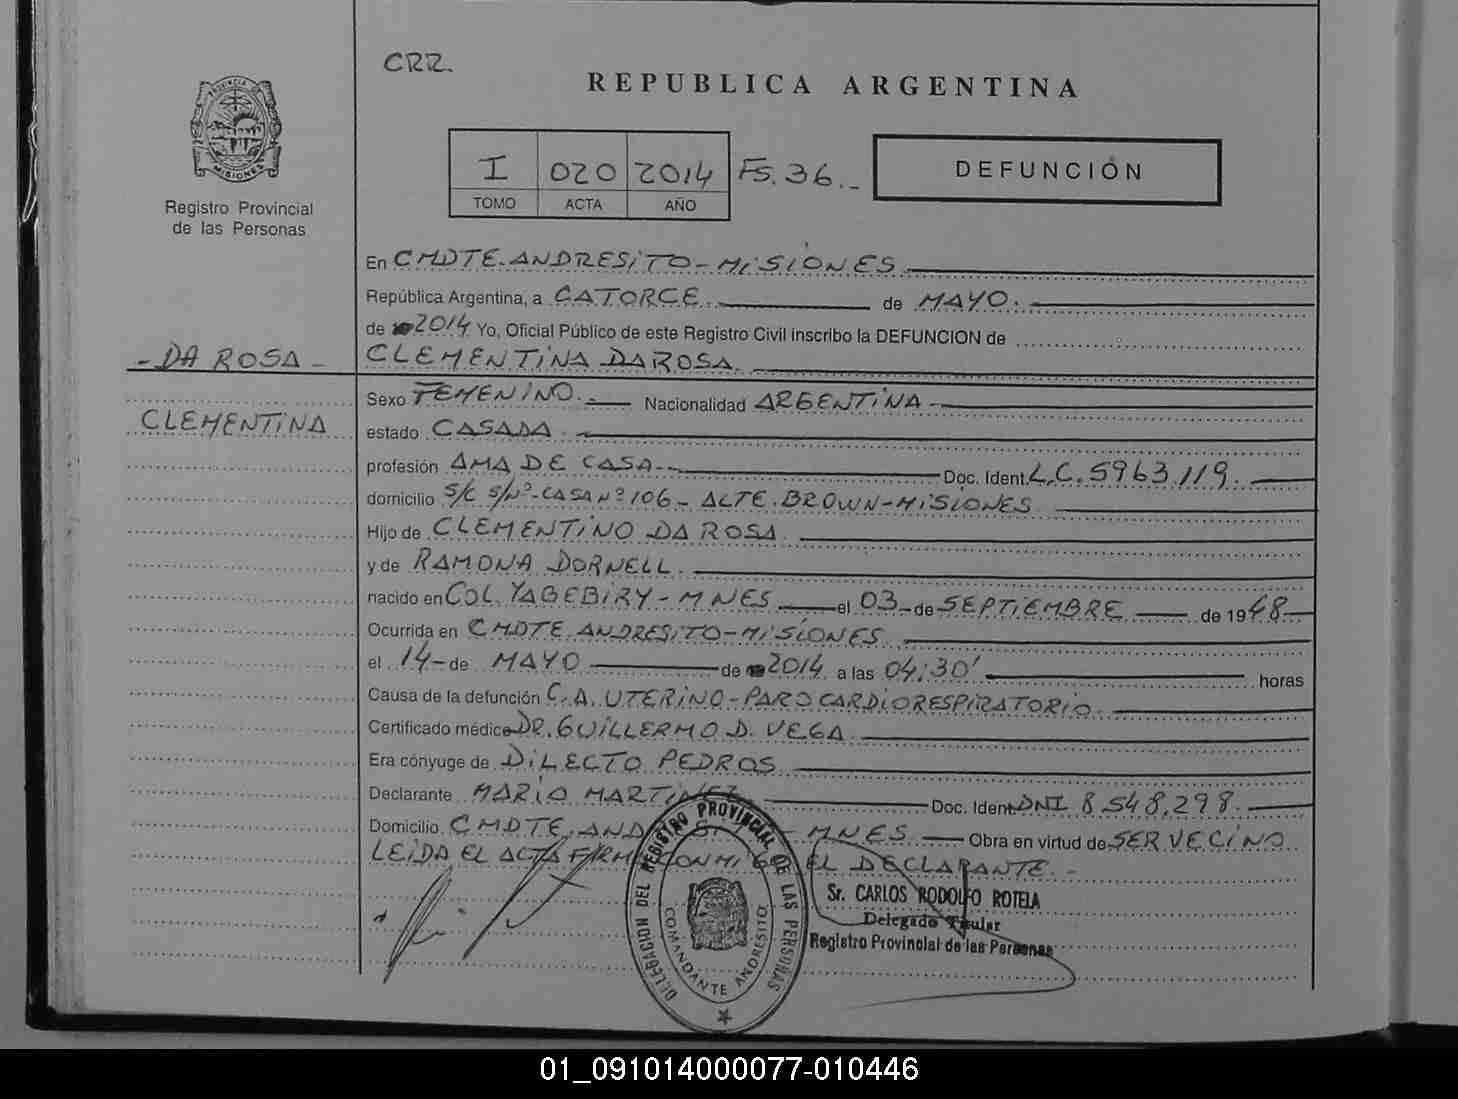 CRR.
REPUBLICA ARGENTINA
PROVINCIA DE MISIONES
I 020 2014 Fs. 36.-
TOMO ACTA AÑO
DEFUNCIÓN
Registro Provincial
de las Personas
En CMDTE. ANDRESITO - MISIONES
República Argentina, a CATORCE de MAYO.
de 2014 Yo, Oficial Público de este Registro Civil inscribo la DEFUNCION de
- DA ROSA -
CLEMENTINA DA ROSA.
Sexo FEMENINO.- Nacionalidad ARGENTINA
CLEMENTINA
estado CASADA
profesión AMA DE CASA Doc. Ident. L.C. 5963.119.
domicilio S/C S/Nº - CASA Nº 106 - ALTE. BROWN - MISIONES
Hijo de CLEMENTINO DA ROSA
y de RAMONA DORNELL
nacido en COL. YABEBIRY - MNES el 03 de SEPTIEMBRE de 1948
Ocurrida en CMDTE ANDRESITO - MISIONES
el 14 - de MAYO de 2014 a las 04:30' horas
Causa de la defunción C.A. UTERINO - PARO CARDIORESPIRATORIO
Certificado médico DR. GUILLERMO D. VEGA
Era cónyuge de DILECTO PEDROS
Declarante MARIO MARTINEZ Doc. Ident. DNI 8.548.298.
Domicilio CMDTE. ANDRESITO - MNES Obra en virtud de SER VECINO
LEIDA EL ACTA FIRMA CONMIGO EL DECLARANTE.-
DELEGACION DEL REGISTRO PROVINCIAL DE LAS PERSONAS
COMANDANTE ANDRESITO
Sr. CARLOS RODOLFO ROTELA
Delegado Titular
Registro Provincial de las Personas
01_091014000077-010446